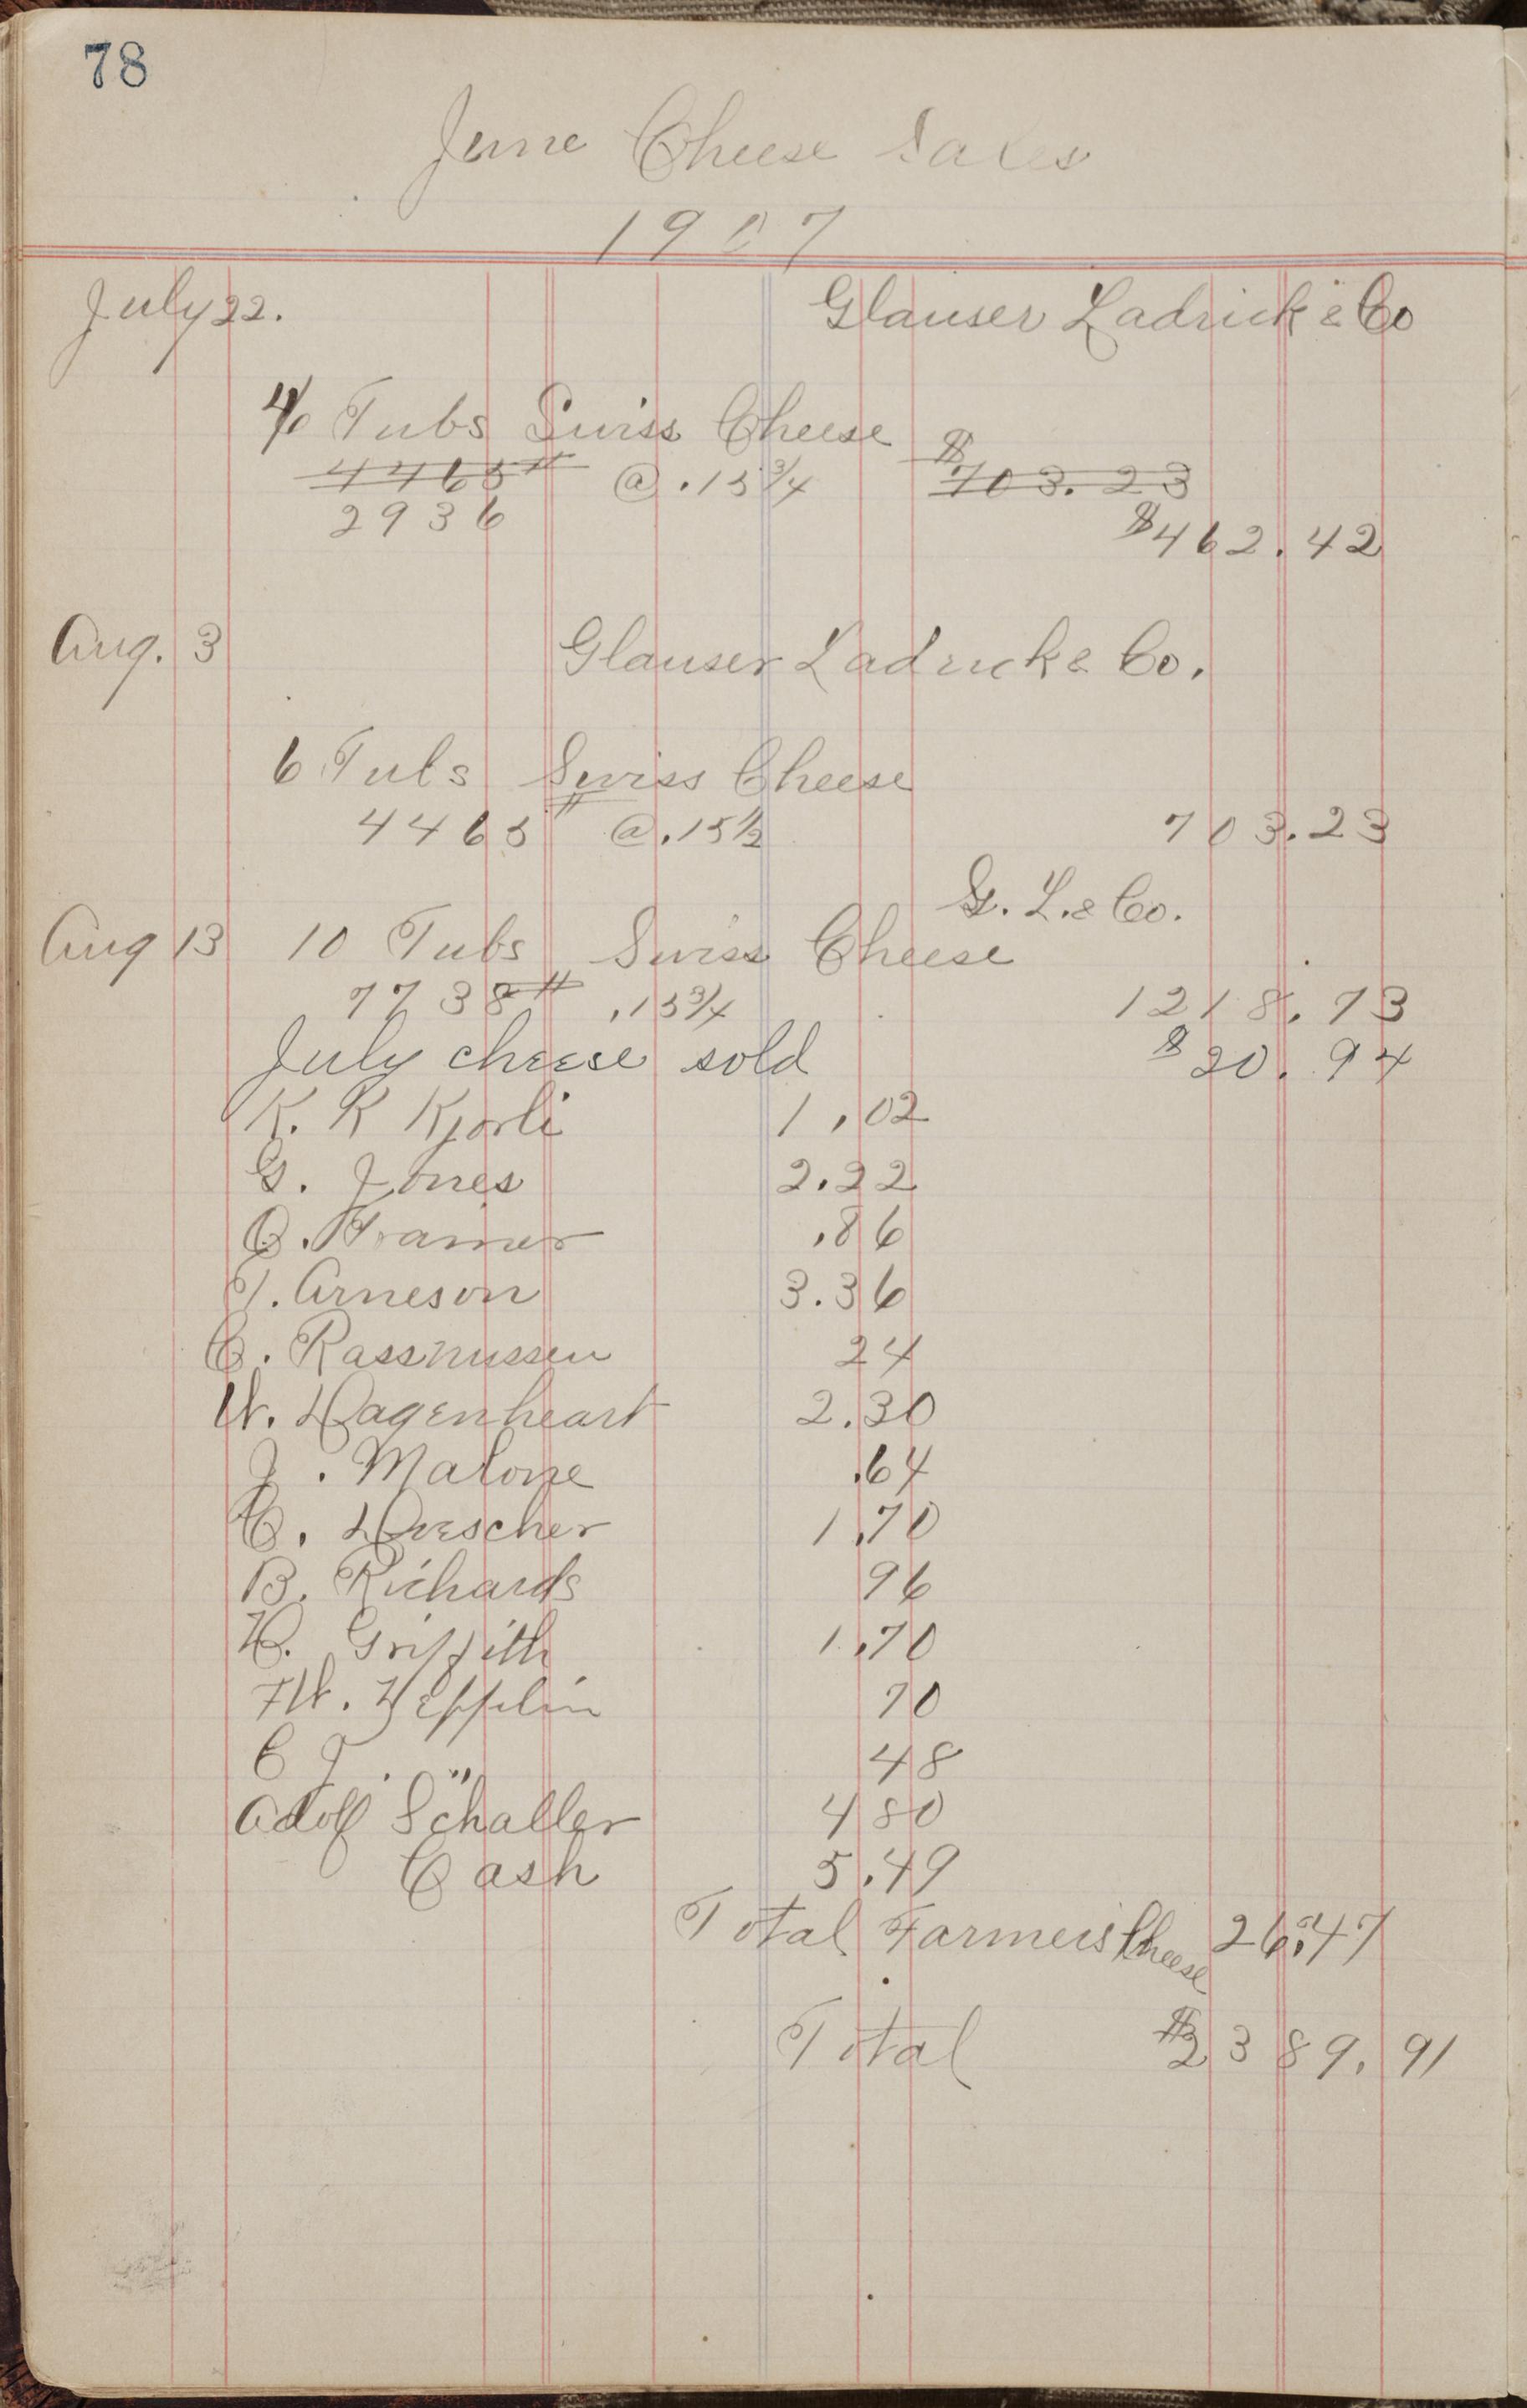 78
June Cheese Sales
1907
July 22. Glauser Ladrick & Co
4 Tubs Swiss Cheese
4465# @ .15 3/4 $703.23
2936
$462.42
Aug. 3 Glauser Ladrick & Co.
6 Tubs Swiss Cheese
4465# @ .15 1/2 703.23
G. L. & Co.
Aug 13 10 Tubs Swiss Cheese
7738# .15 3/4 1218.73
July cheese sold $20.94
K. K Kjorli 1.02
G. Jones 2.22
O. Tramer .86
T. Arneson 3.36
C. Rassmussen 24
W. Hagenheart 2.30
J. Malone .64
C. Doescher 1.70
B. Richards 96
H. Griffith 1.70
F W. Zepplin 70
C J. " 48
Adolf Schaller 480
Cash 5.49
Total Farmers Cheese 26.47
Total $2389.91